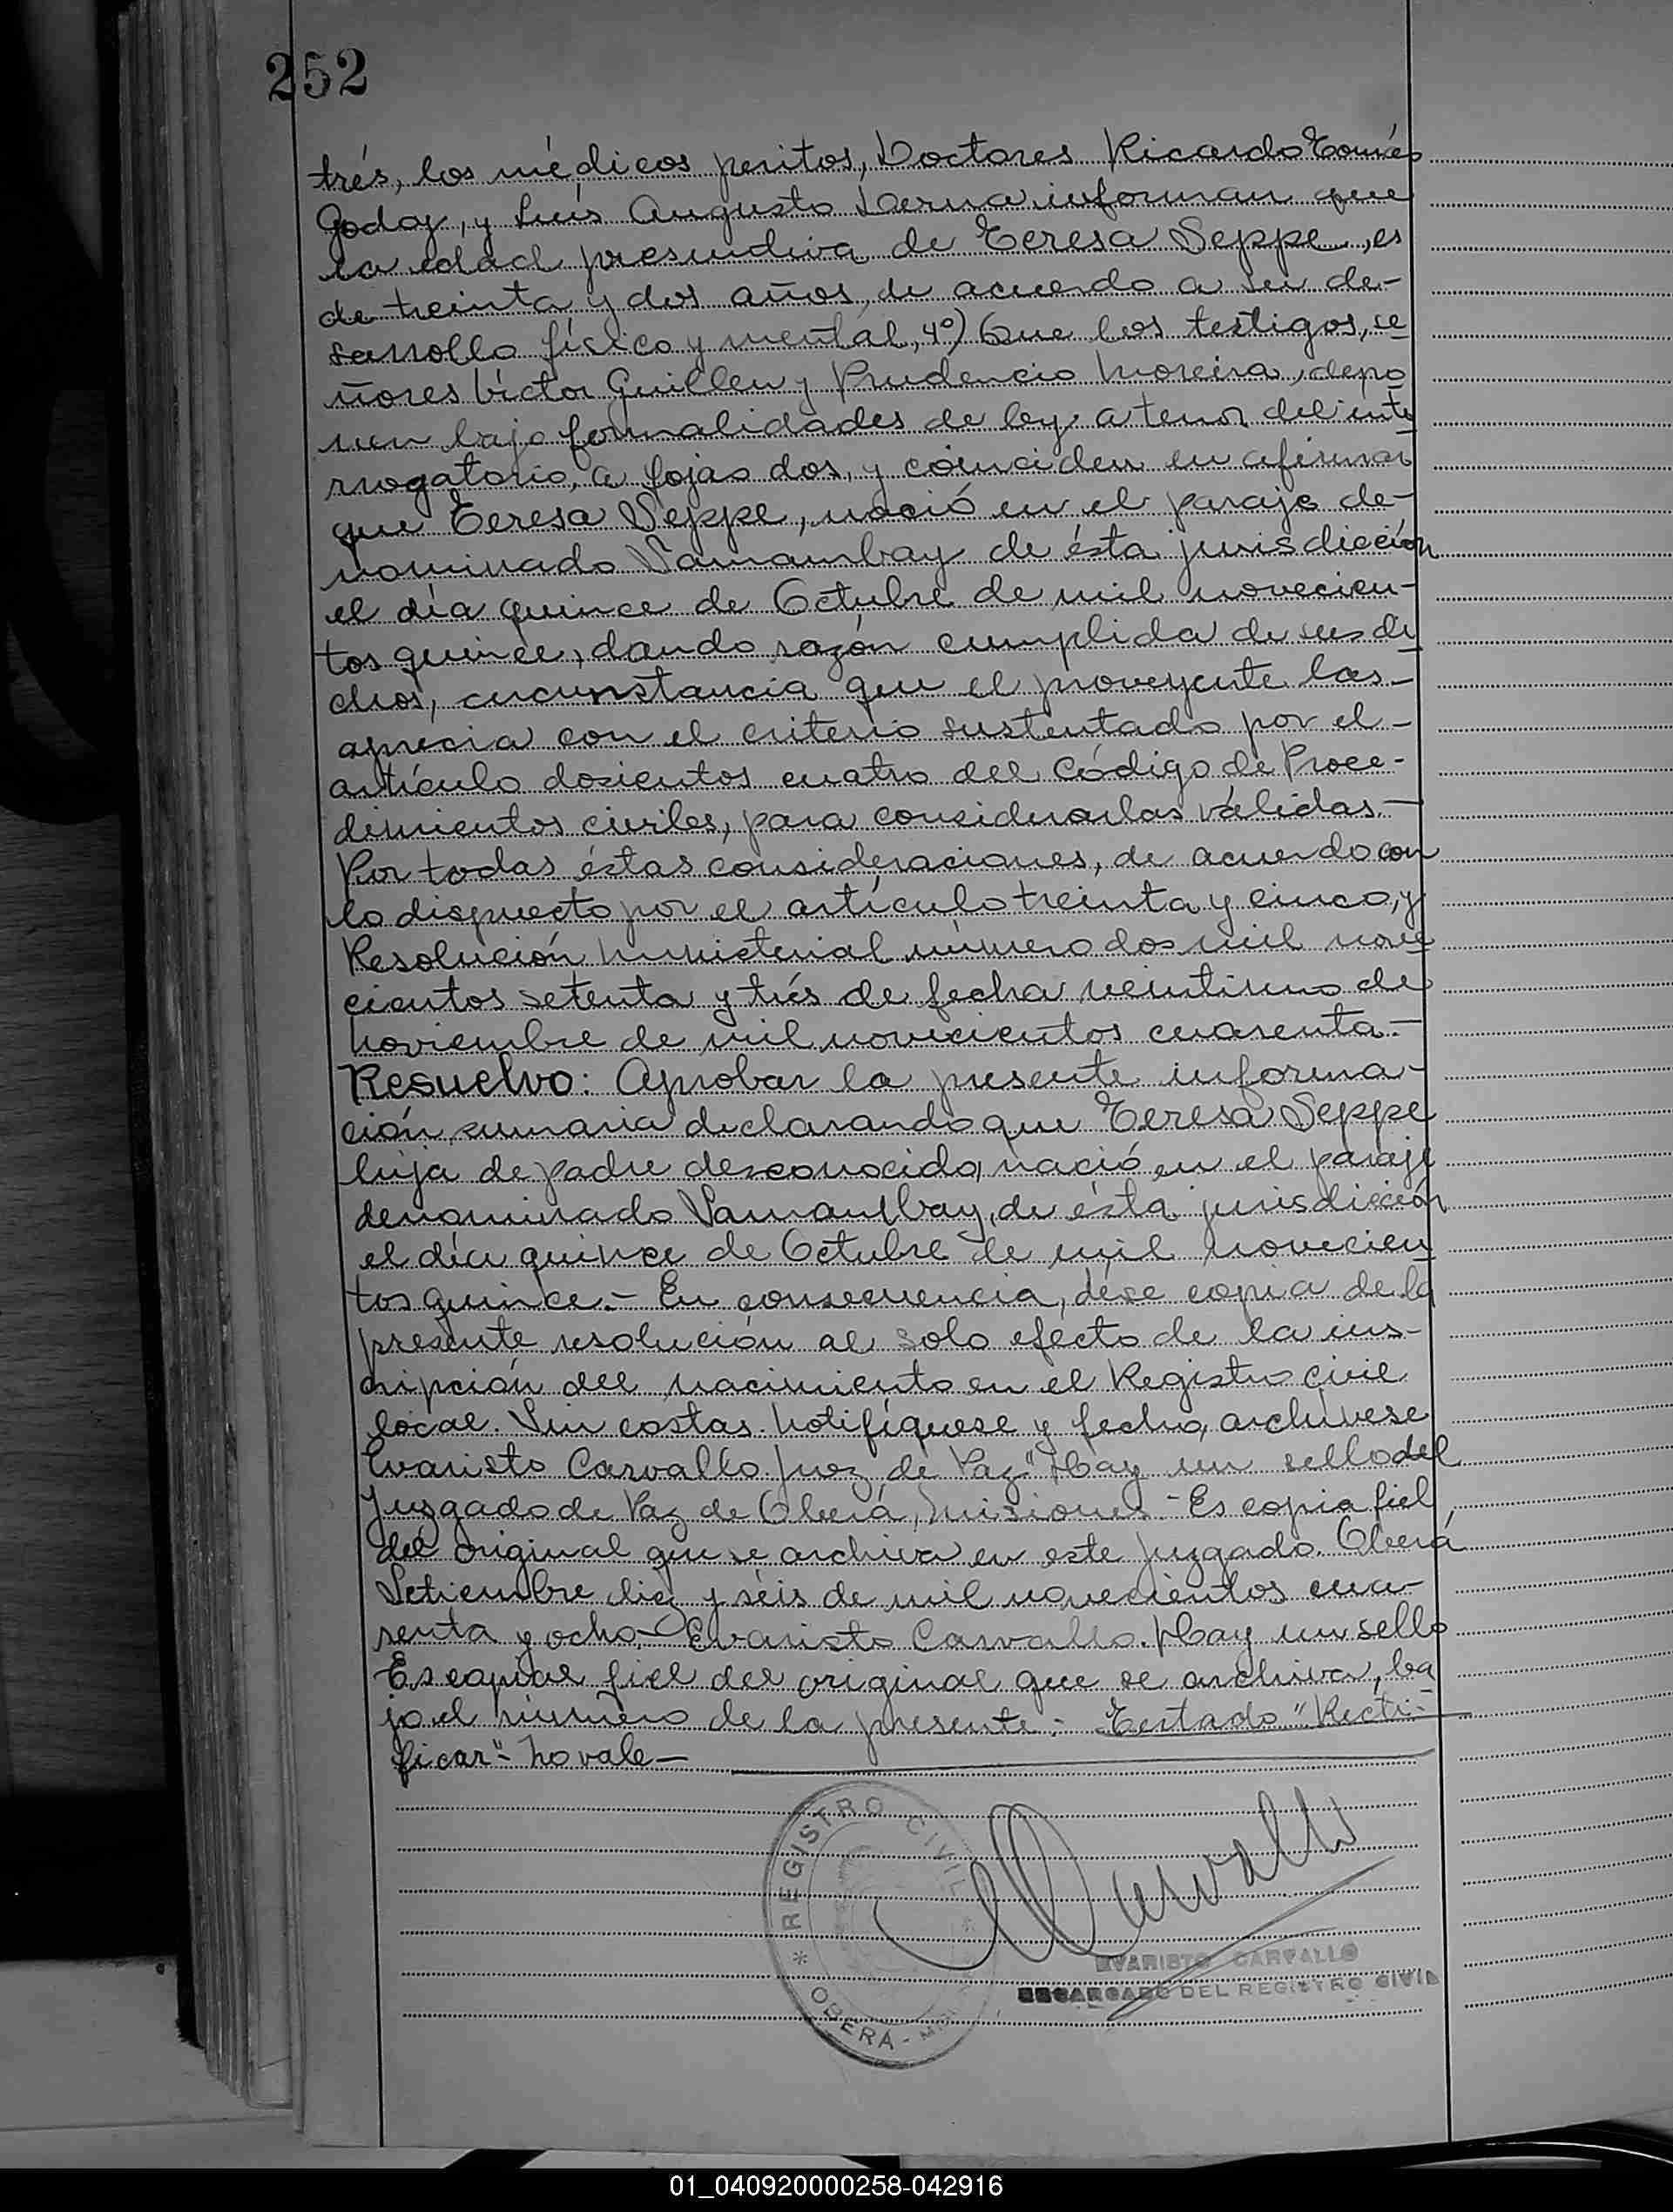 252
trés, los médicos peritos, Doctores Ricardo Tomás
Godoy, y Luís Augusto informan que
la edad presuntiva de Teresa Seppe, es
de treinta y dos años, de acuerdo a su de-
sarrollo físico y mentál, 4º) Que los testigos, se
ñores Víctor Guillen y Prudencio Moreira, depo
nen bajo formalidades de ley a tenor del inte
rrogatorio, a fojas dos, y coinciden en afirmar
que Teresa Seppe, nació en el paraje de-
nominado Samambay de ésta jurisdicción
el día quince de Octubre de mil novecien-
tos quince, dando razón cumplida de sus di
chos, circunstancia que el proveyente las-
aprecia con el criterio sustentado por el-
artículo dosientos cuatro del Código de Proce-
dimientos civiles, para considerarlas válidas.-
Por todas éstas consideraciones, de acuerdo con
lo dispuesto por el artículo treinta y cinco, y
Resolución Ministerial número dos mil nove
cientos setenta y trés de fecha veintiuno de
noviembre de mil novecientos cuarenta.-
Resuelvo: Aprobar la presente informa-
ción sumaria declarando que Teresa Seppe
hija de padre desconocido, nació en el paraje
denominado Samambay, de ésta jurisdicción
el día quince de Octubre de mil novecien
tos quince.- En consecuencia, dése copia de la
presente resolución al solo efécto de la ins-
cripción del nacimiento en el Registro Civil
local. Sin costas. Notifíquese y fecho, archívese
Evaristo Carvallo. Juez de Paz" Hay un sello del
Juzgado de Paz de Oberá, Misiones.- Es copia fiel
del original que se archiva en este juzgado. Oberá
Setiembre diez y séis de mil novecientos cua-
renta y ocho.- Evaristo Carvallo. Hay un sello
Es copia fiel del original que se archiva, ba
jo el número de la presente.- Testado "Recti-
ficar"- No vale-
REGISTRO CIVIL
* OBERÁ -
Carvallo
EVARISTO CARVALLO
ENCARGADO DEL REGISTRO CIVIL
01_040920000258-042916